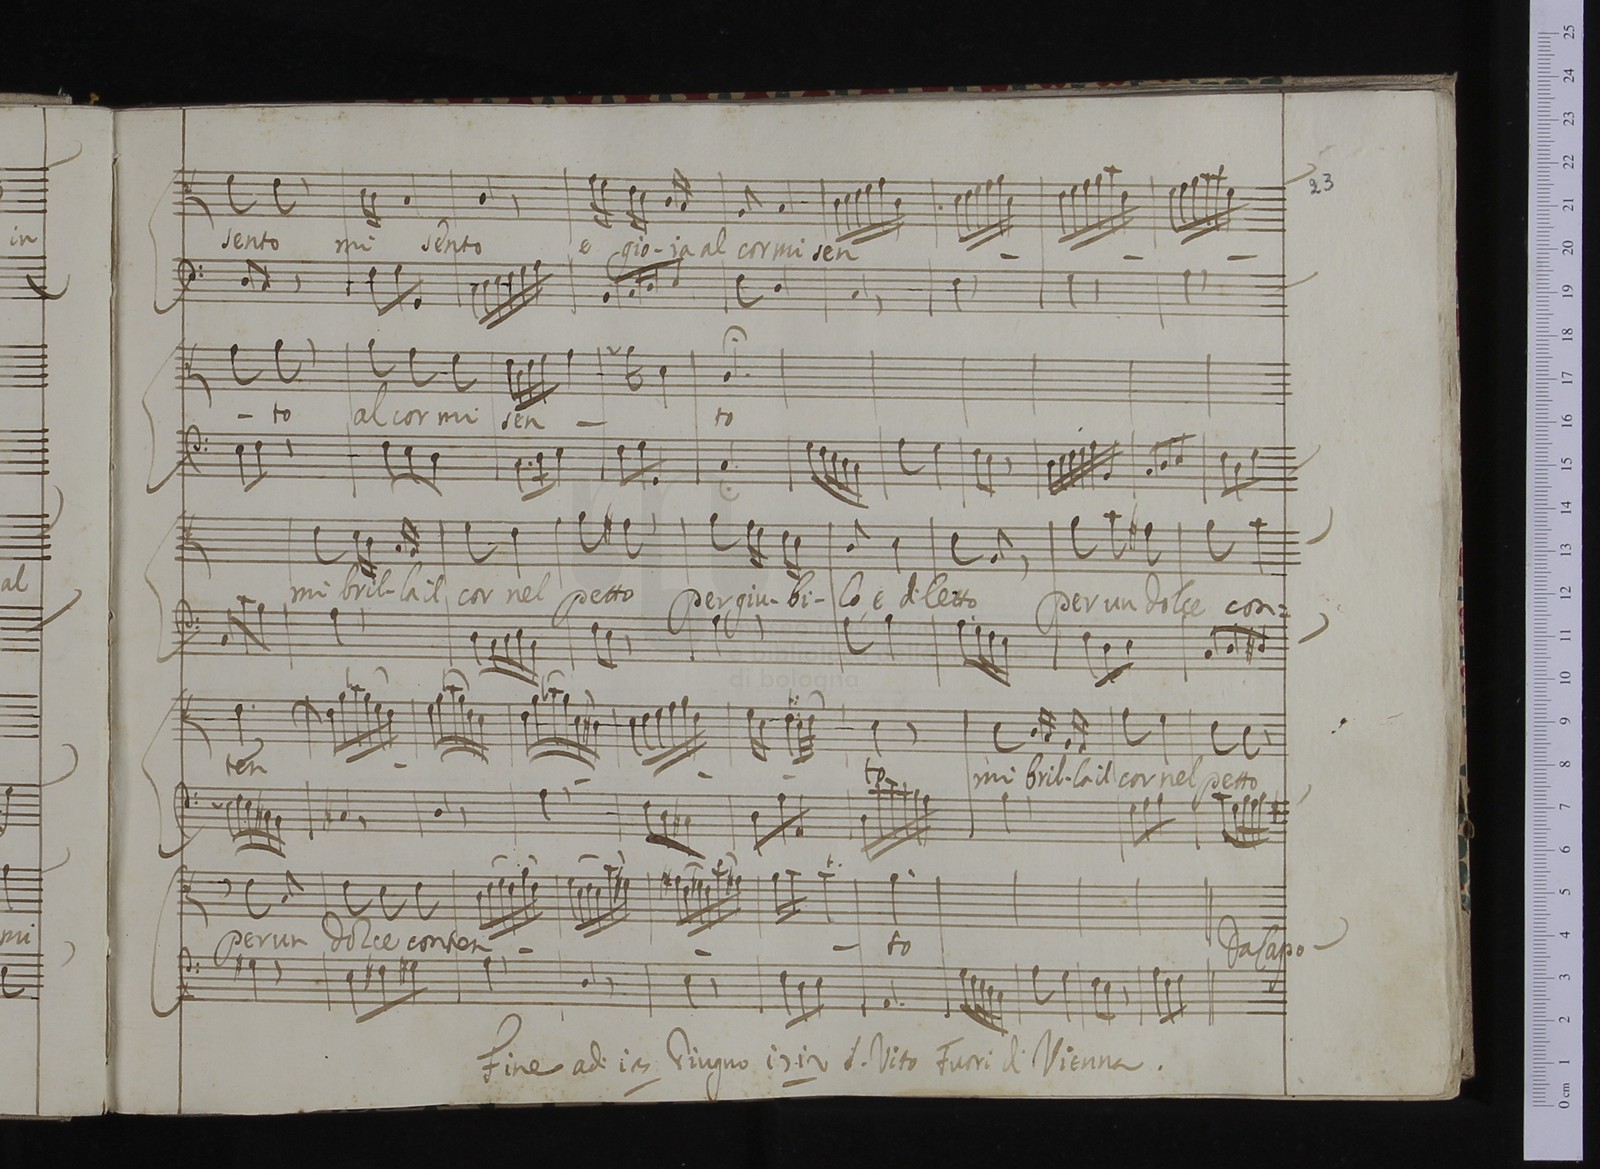 23
in
sento mi sento e gio-ia al cor mi sen - - -
- to al cor mi sen - to
al
mi bril-la il cor nel petto per giu-bi-lo e diletto per un dolce con=
ten - - - - - to mi bril-la il cor nel petto
mi
per un dolce conten - - - to Da Capo
Fine adi Giugno S. Vito Fuori di Vienna.
museo internazionale
biblioteca della musica
di bologna
25
24
23
22
21
20
19
18
17
16
15
14
13
12
11
10
9
8
7
6
5
4
3
2
1
0 cm